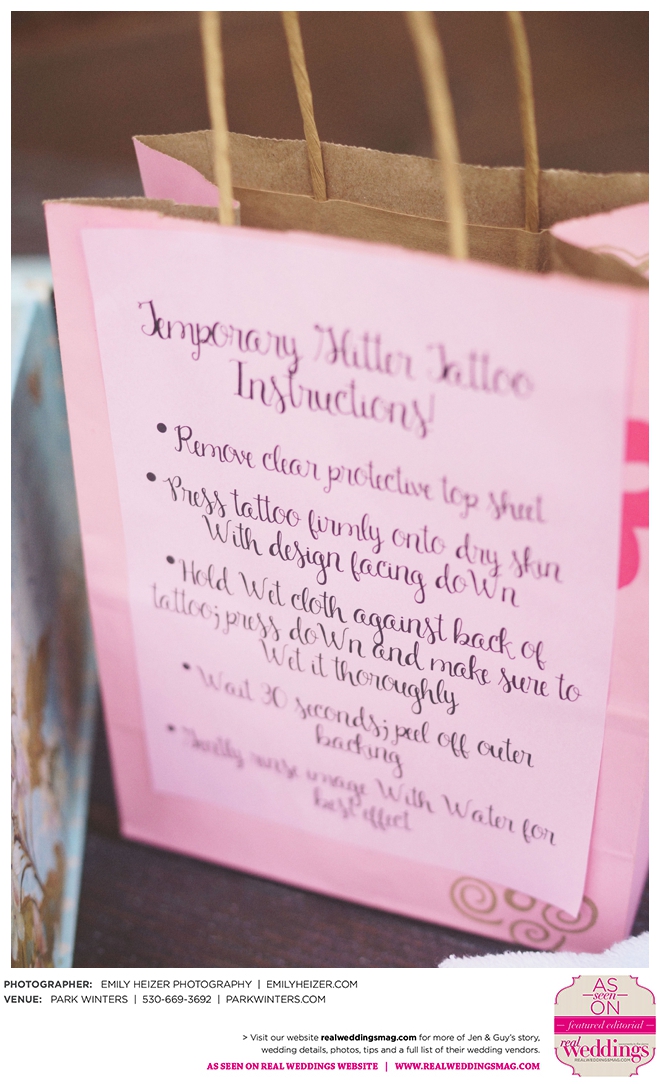 Temporary Glitter Tattoo
Instructions!
• Remove clear protective top sheet
• Press tattoo firmly onto dry skin
With design facing doWn
• Hold Wet cloth against back of
tattoo; press doWn and make sure to
Wet it thoroughly
• Wait 30 seconds; peel off outer
backing
• Gently rinse image With Water for
best effect
PHOTOGRAPHER: EMILY HEIZER PHOTOGRAPHY | EMILYHEIZER.COM
VENUE: PARK WINTERS | 530-669-3692 | PARKWINTERS.COM
> Visit our website realweddingsmag.com for more of Jen & Guy's story,
wedding details, photos, tips and a full list of their wedding vendors.
AS SEEN ON REAL WEDDINGS WEBSITE | WWW.REALWEDDINGSMAG.COM
AS
seen
ON
featured editorial
real
weddings
REALWEDDINGSMAG.COM